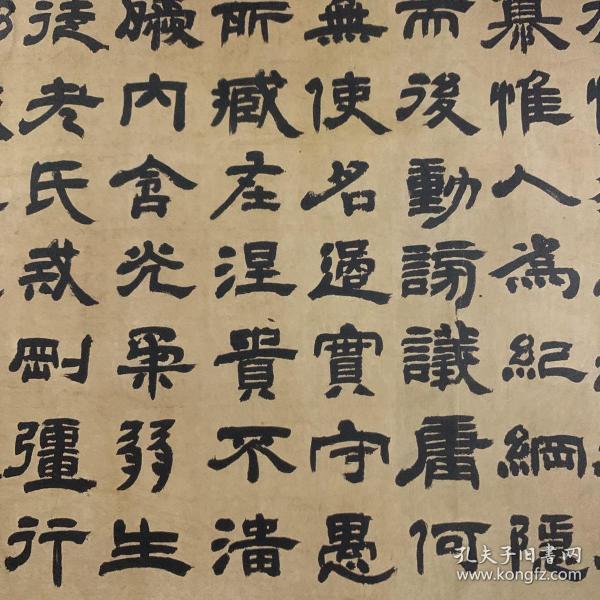 慕惟人為紀綱隱
而後動謗議庸何
無使名過實守愚
所臧在涅貴不淄
曖內含光柔弱生
徒老氏戒剛彊行
孔夫子旧书网
www.kongfz.com